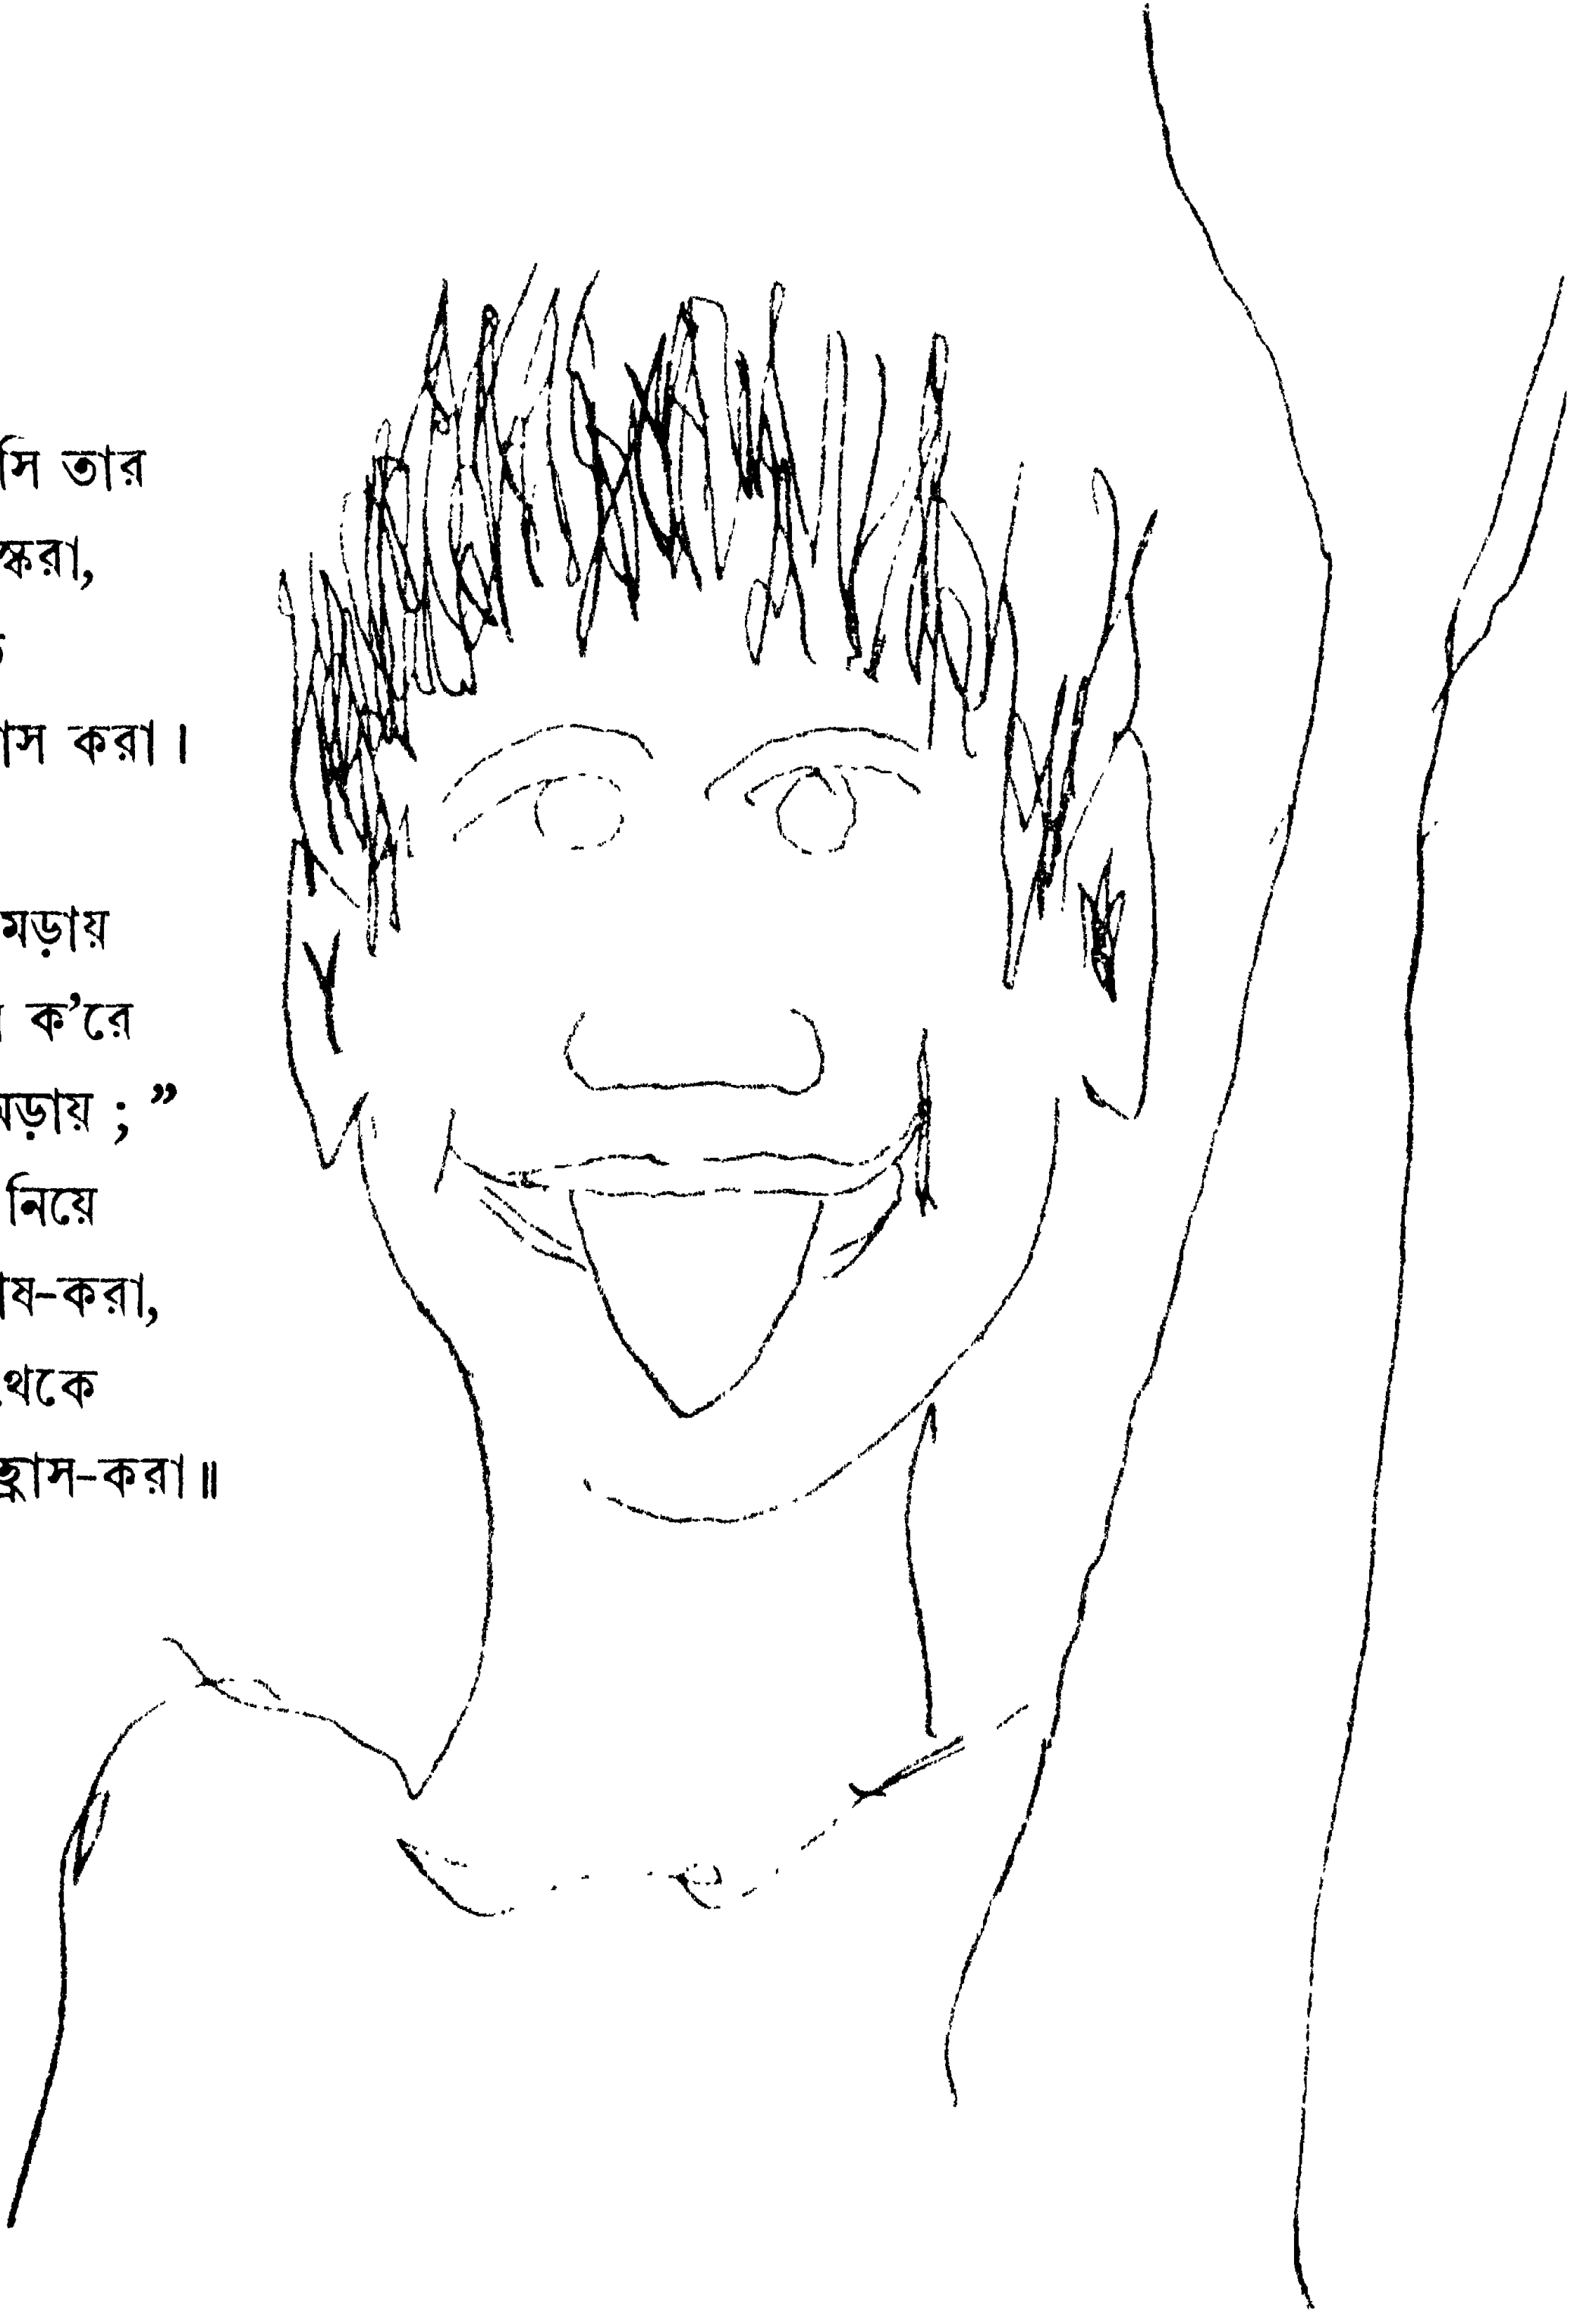 সি তার
স্করা,
াস করা।
মড়ায়
ক’রে
মড়ায় ; ”
নিয়ে
াষ-করা,
থেকে
হ্রাস-করা॥